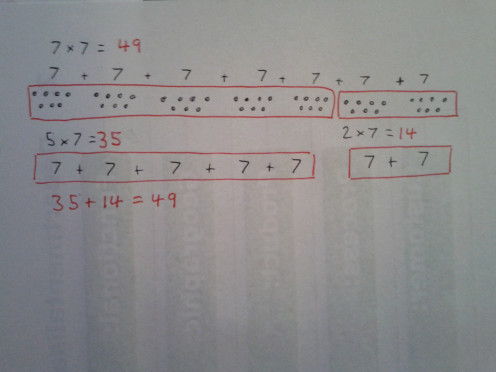 7 × 7 = 49
7 + 7 + 7 + 7 + 7 + 7 + 7
5 × 7 = 35 2 × 7 = 14
7 + 7 + 7 + 7 + 7 7 + 7
35 + 14 = 49